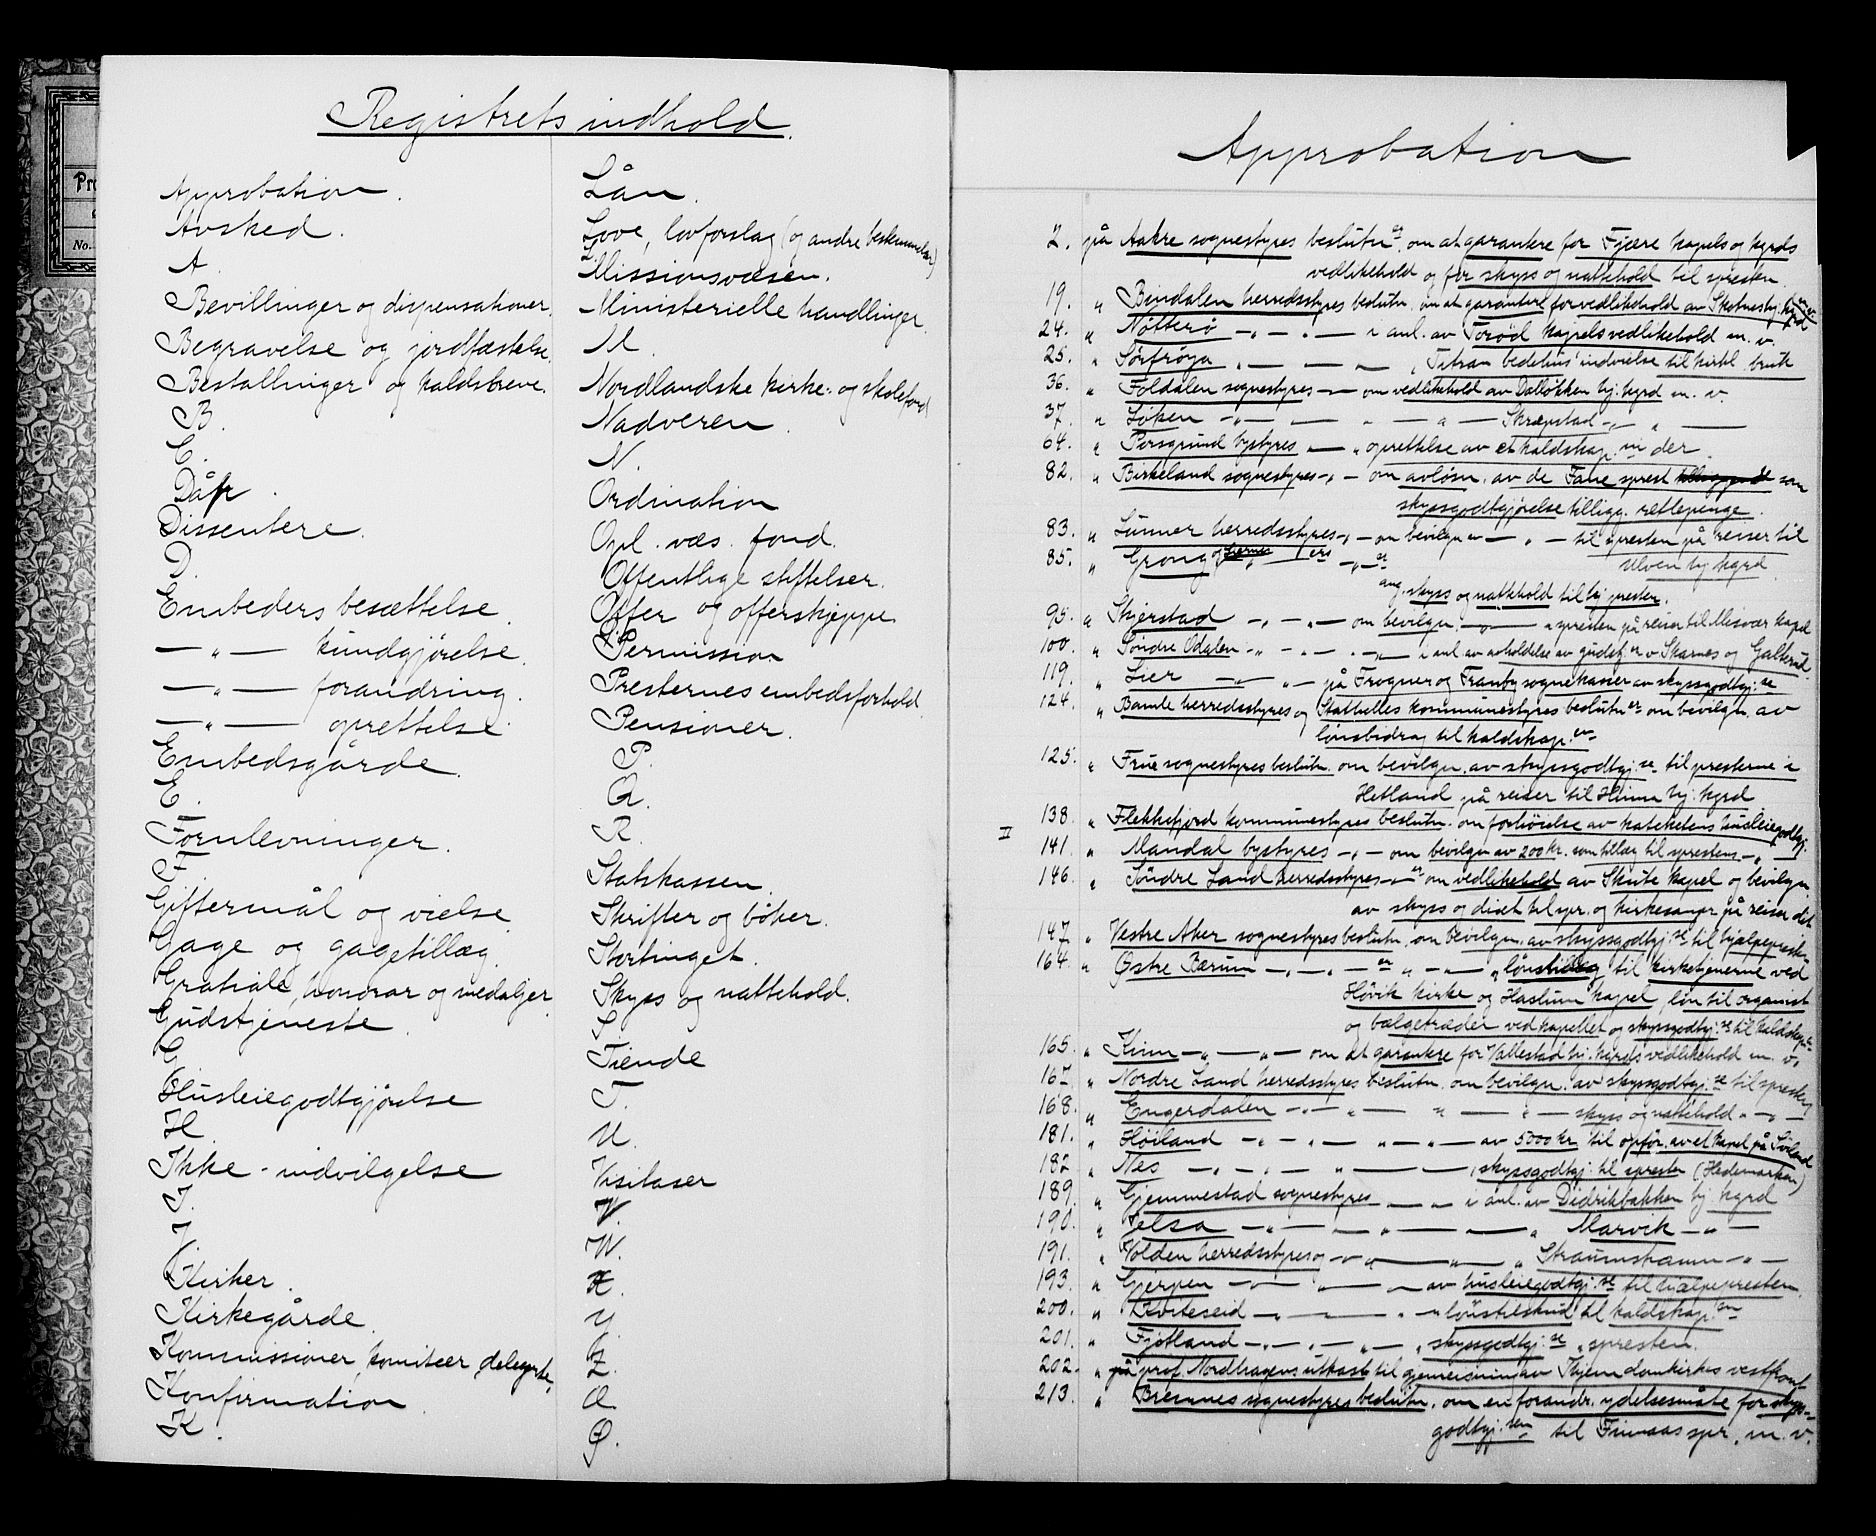 Registrets indhold.
Approbation.
Avsked.
A.
Bevillinger og dispensationer.
Begravelse og jordfæstelse.
Bestallinger og kaldsbreve.
B.
C.
Dåp.
Dissentere.
D.
Embeders besættelse.
— " — kundgjørelse.
— " — forandring.
— " — oprettelse.
Embedsgårde.
E.
Fornlevninger.
F.
Giftermål og vielse.
Gage og gagetillæg.
Gratiale, honorar og medaljer.
Gudstjeneste.
G.
Husleiegodtgjørelse
H.
Ikke-indvilgelse
I.
J.
Kirker.
Kirkegårde.
Kommissioner, komiteer, delegerte.
Konfirmation.
K.
Lån.
Love, lovforslag (og andre bestemmelser)
L.
Missionsvæsen.
Ministerielle handlinger.
M.
Nordlandske kirke- og skolefond
Nadveren.
N.
Ordination
Opl. væs. fond.
Offentlige stiftelser.
Offer og offerskjeppe
O.
Permission
Presternes embedsforhold
Pensioner.
P.
Q.
R.
Statskassen.
Skrifter og bøker.
Stortinget.
Skyss og nattehold.
S.
Tiende
T.
U.
Visitaser
V.
W.
X.
Y.
Z.
Æ.
Ø.
No.
Approbation
2. på Aakre sognestyres beslutn. om at garantere for Fjære kapels og kgrds
vedlikehold og for skyss og nattehold til spresten.
19. " Bindalen herredsstyres beslutn. om at garantere for vedlikehold av hj. kgrd m. v.
24. " Nøtterø — " — " — i anl. av Torød kapels vedlikehold m. v.
25. " Sørfrøya " — — — " Titran bedehus' indvielse til kirkl. bruk
36. " Foldalen sognestyres — " — om vedlikehold av Dalløkken hj. kgrd m. v.
37. " Løken — " — " — " — Skrepstad — " — " —
64. " Porsgrund bystyres — " — " oprettelse av et kaldskap. m der.
82. " Birkeland sognestyres — " — om avløsn. av de Fane sprest som
skyssgodtgjørelse tilligg. rettepenge.
83. " Lunner herredsstyres — " — om bevilgn. — " — til spresten på reiser til
Ulven hj. kgrd
85. " Grong og — " —
ang. skyss og nattehold til hj. presten.
95. " Skjerstad — " — " — om bevilgn. — " — " spresten på reiser til Misvær kapel
100. " Søndre Odalen — " — " — " — i anl. av avholdelse av gudstj. v. Skarnes og Galterud.
119. " Lier — " — " — på Frogner og Tranby sognekasser av skyssgodtgj. se
124. " Bamle herredsstyres og Stathelles kommunestyres beslutn. er om bevilgn. av
lønsbidrag til kaldskap. en
125. " Frue sognestyres beslutn. om bevilgn. av skyssgodtgj. se til presterne i
Hetland på reiser til Hinna hj. kgrd
138. " Flekkefjord kommunestyres beslutn. om forhøielse av kateketens husleiegodtgj.
II 141. " Mandal bystyres — " — om bevilgn. av 200 kr. som tillæg til sprestens — " —
146. " Søndre Land herredsstyres — " — er om vedlikehold av Skute kapel og bevilgn.
av skyss og diæt til spr. og kirkesanger på reiser dit
147. " Vestre Aker sognestyres beslutn. om bevilgn. av skyssgodtgj. se til hjælpepresten
164. " Østre Bærum — " — " — er " — " — " lønstillæg til kirketjenerne ved
Høvik kirke og Haslum kapel, løn til organist
og bælgetræder ved kapellet og skyssgodtgj. se til kaldskap.
165. " Kinn — " — " — om at garantere for Vallestad hj. kgrds vedlikehold m. v.
167. " Nordre Land herredsstyres beslutn. om bevilgn. av skyssgodtgj. se til spresten
168. " Engerdalen — " — " — " — " — skyss og nattehold " — " —
181. " Høiland — " — " — " — " — av 5000 kr. til opfør. av et kapel på Sviland
182. " Nes — " — " — " — — " skyssgodtgj. til spresten (Hedemarken)
189. " Gjemmestad sognestyres — " — " i anl. av Didrikbakken hj. kgrd
190. " Jelsa — " — — " — — " Marvik — " —
191. " Volden herredsstyres og — " — " — " — " Straumshamn — " —
193. " Gjerpen — " — " — " — av husleiegodtgj. se til hjælpepresten.
200. " Kviteseid — " — " — " — " lønstilskud til kaldskap. en
201. " Fjotland — " — " — " — " skyssgodtgj. se " spresten.
202. " på prof. Nordhagens utkast til gjenreisning av Thjems domkirkes vestfront
213. " Bremnes sognestyres beslutn. om en forandr. ydelsesmåte for skyss-
godtgj. sen til Finnaas spr. m. v.